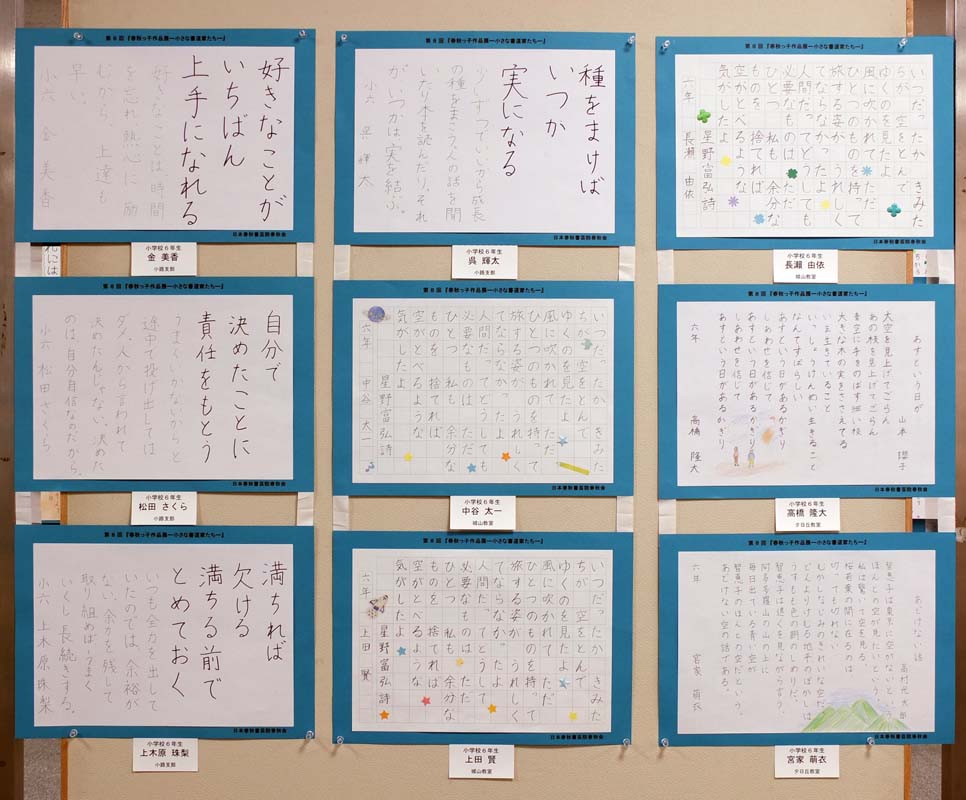 第8回『春秋っ子作品展―小さな書道家たち―』
好きなことが
いちばん
上手になれる
好きなことは時間
を忘れ熱心に励
むから、上達も
早い。
小六 金美香
日本春秋書芸院春秋会
小学校6年生
金 美香
小路支部
第8回『春秋っ子作品展―小さな書道家たち―』
種をまけば
いつか
実になる
少しずつでいいから成長
の種をまこう。人の話を聞
いたり本を読んだり、それ
がいつかは実を結ぶ。
小六 呉 輝太
日本春秋書芸院春秋会
小学校6年生
呉 輝太
小路支部
第8回『春秋っ子作品展―小さな書道家たち―』
いつだったか きみた
ちが 空をとんで
ゆくのを見たよ
風に吹かれて ただ
ひとつのものを持って
旅する姿が うれしく
てならなかったよ
人間だってどうして
必要なものは ただ
ひとつ 私も 余分な
ものを 捨てれば
空がとべるような
気がしたよ
星野富弘詩
六年 長瀬 由依
日本春秋書芸院春秋会
小学校6年生
長瀬 由依
城山教室
自分で
決めたことに
責任をもとう
うまく いかないからと
途中で投げ出しては
ダメ。人から言われて
決めたんじゃない。決めた
のは、自分自信なのだから。
小六 松田さくら
日本春秋書芸院春秋会
小学校6年生
松田 さくら
小路支部
第8回『春秋っ子作品展―小さな書道家たち―』
いつだったか きみた
ちが 空をとんで
ゆくのを見たよ
風に吹かれて ただ
ひとつのものを持って
旅する姿が うれしく
てならなかったよ
人間だってどうして
必要なものは ただ
ひとつ 私も 余分な
ものを 捨てれば
空がとべるような
気がしたよ
星野富弘詩
六年 中谷 太一
日本春秋書芸院春秋会
小学校6年生
中谷 太一
城山教室
第8回『春秋っ子作品展―小さな書道家たち―』
あすという日が
山本 瓔子
大空を見上げてごらん
あの枝を見上げてごらん
青空に手をのばす細い枝
大きな木の実をささえてる
いま生きていること
いっしょけんめい生きること
なんてすばらしい
あすという日があるかぎり
しあわせを信じて
あすという日があるかぎり
しあわせを信じて
あすという日があるかぎり
六年 高橋 隆大
日本春秋書芸院春秋会
小学校6年生
高橋 隆大
夕日丘教室
第8回『春秋っ子作品展―小さな書道家たち―』
満ちれば
欠ける
満ちる前で
とめておく
いつも全力を出して
いたのでは、余裕が
ない。余力を残して
取り組めばうまく
いくし、長続きする。
小六 上木原珠梨
日本春秋書芸院春秋会
小学校6年生
上木原 珠梨
小路支部
第8回『春秋っ子作品展―小さな書道家たち―』
いつだったか きみた
ちが 空をとんで
ゆくのを見たよ
風に吹かれて ただ
ひとつのものを持って
旅する姿が うれしく
てならなかったよ
人間だってどうして
必要なものは ただ
ひとつ 私も 余分な
ものを 捨てれば
空がとべるような
気がしたよ
星野富弘詩
六年 上田 賢
小学校6年生
上田 賢
城山教室
第8回『春秋っ子作品展―小さな書道家たち―』
あどけない話
高村光太郎
智恵子は東京に空がないという
ほんとの空が見たいという
私は驚いて空を見る
桜若葉の間に在るのは
切っても切れない
むかしなじみのきれいな空だ
どんよりけむる地平のぼかしは
うすもも色の朝のしめりだ。
智恵子は遠くを見ながら言う。
阿多多羅山の山の上に
毎日出ている青い空が
智恵子のほんとの空だという。
あどけない空の話である。
六年 宮家 萌衣
日本春秋書芸院春秋会
小学校6年生
宮家 萌衣
夕日丘教室